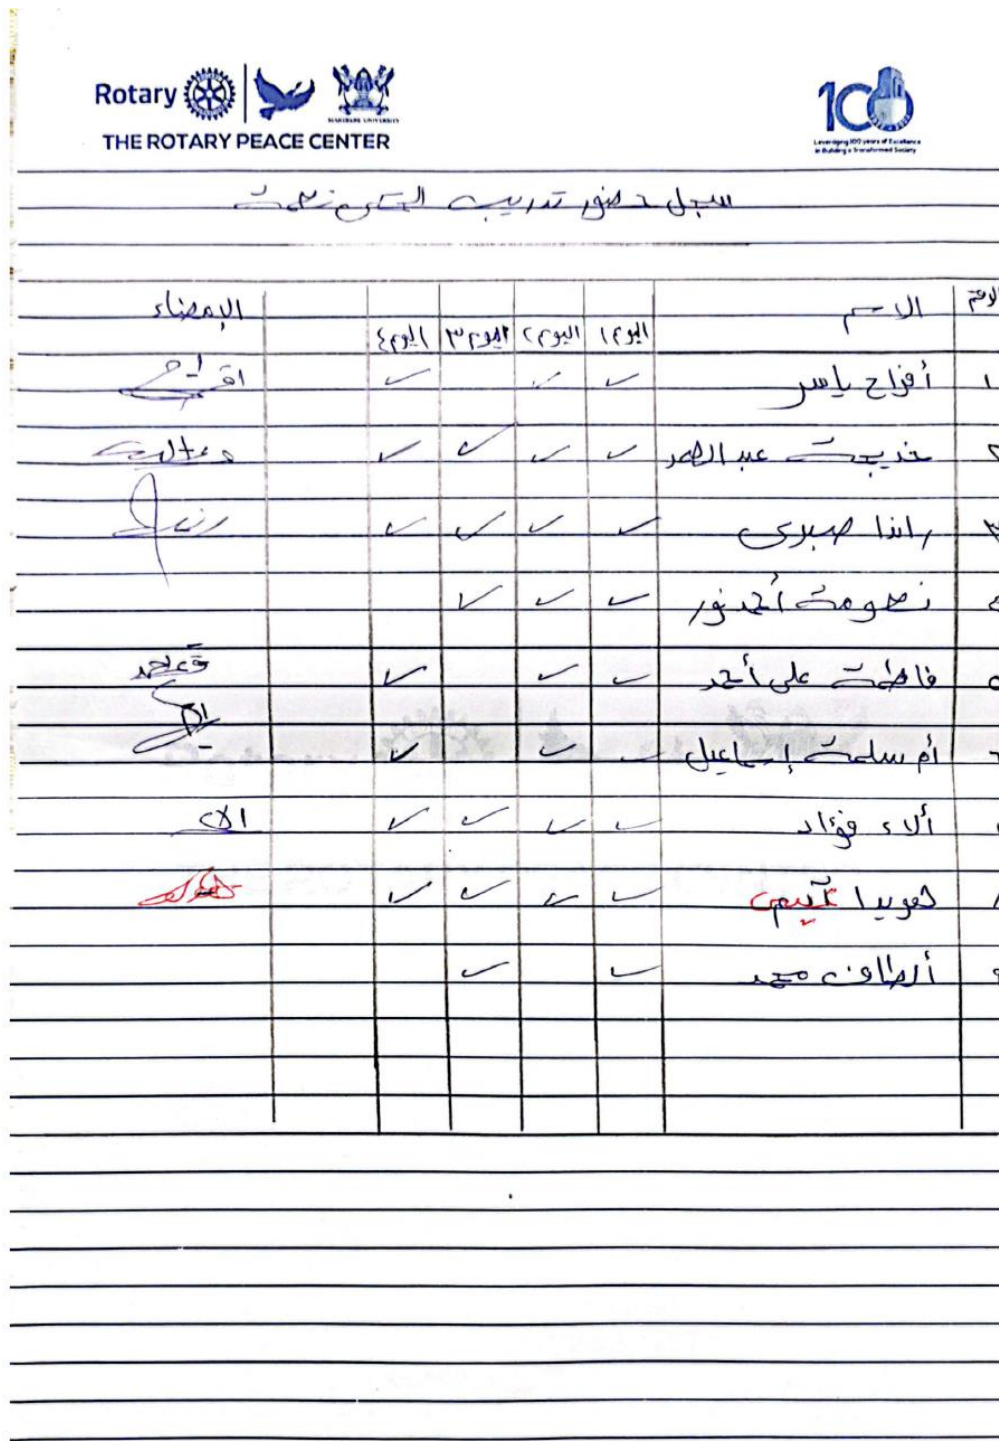 Rotary
MAKERERE UNIVERSITY
THE ROTARY PEACE CENTER
100
Leveraging 100 years of Excellence
in Building a Transformed Society
سجل حضور تدريب
الرقم الاسم اليوم ١ اليوم ٢ اليوم ٣ اليوم ٤ الإمضاء
١ أفراح ياسر ✓ ✓ ✓
٢ خديجة عبد الصمد ✓ ✓ ✓ ✓
٣ راندا صبرى ✓ ✓ ✓ ✓
٤ نعومة أحمد نور ✓ ✓ ✓
٥ فاطمة على أحمد ✓ ✓ ✓
٦ أم سلمة إسماعيل ✓ ✓ ✓
ألاء فؤاد ✓ ✓ ✓ ✓ الاء
٨ هويدا ✓ ✓ ✓ ✓
٩ ألطاف محمد ✓ ✓